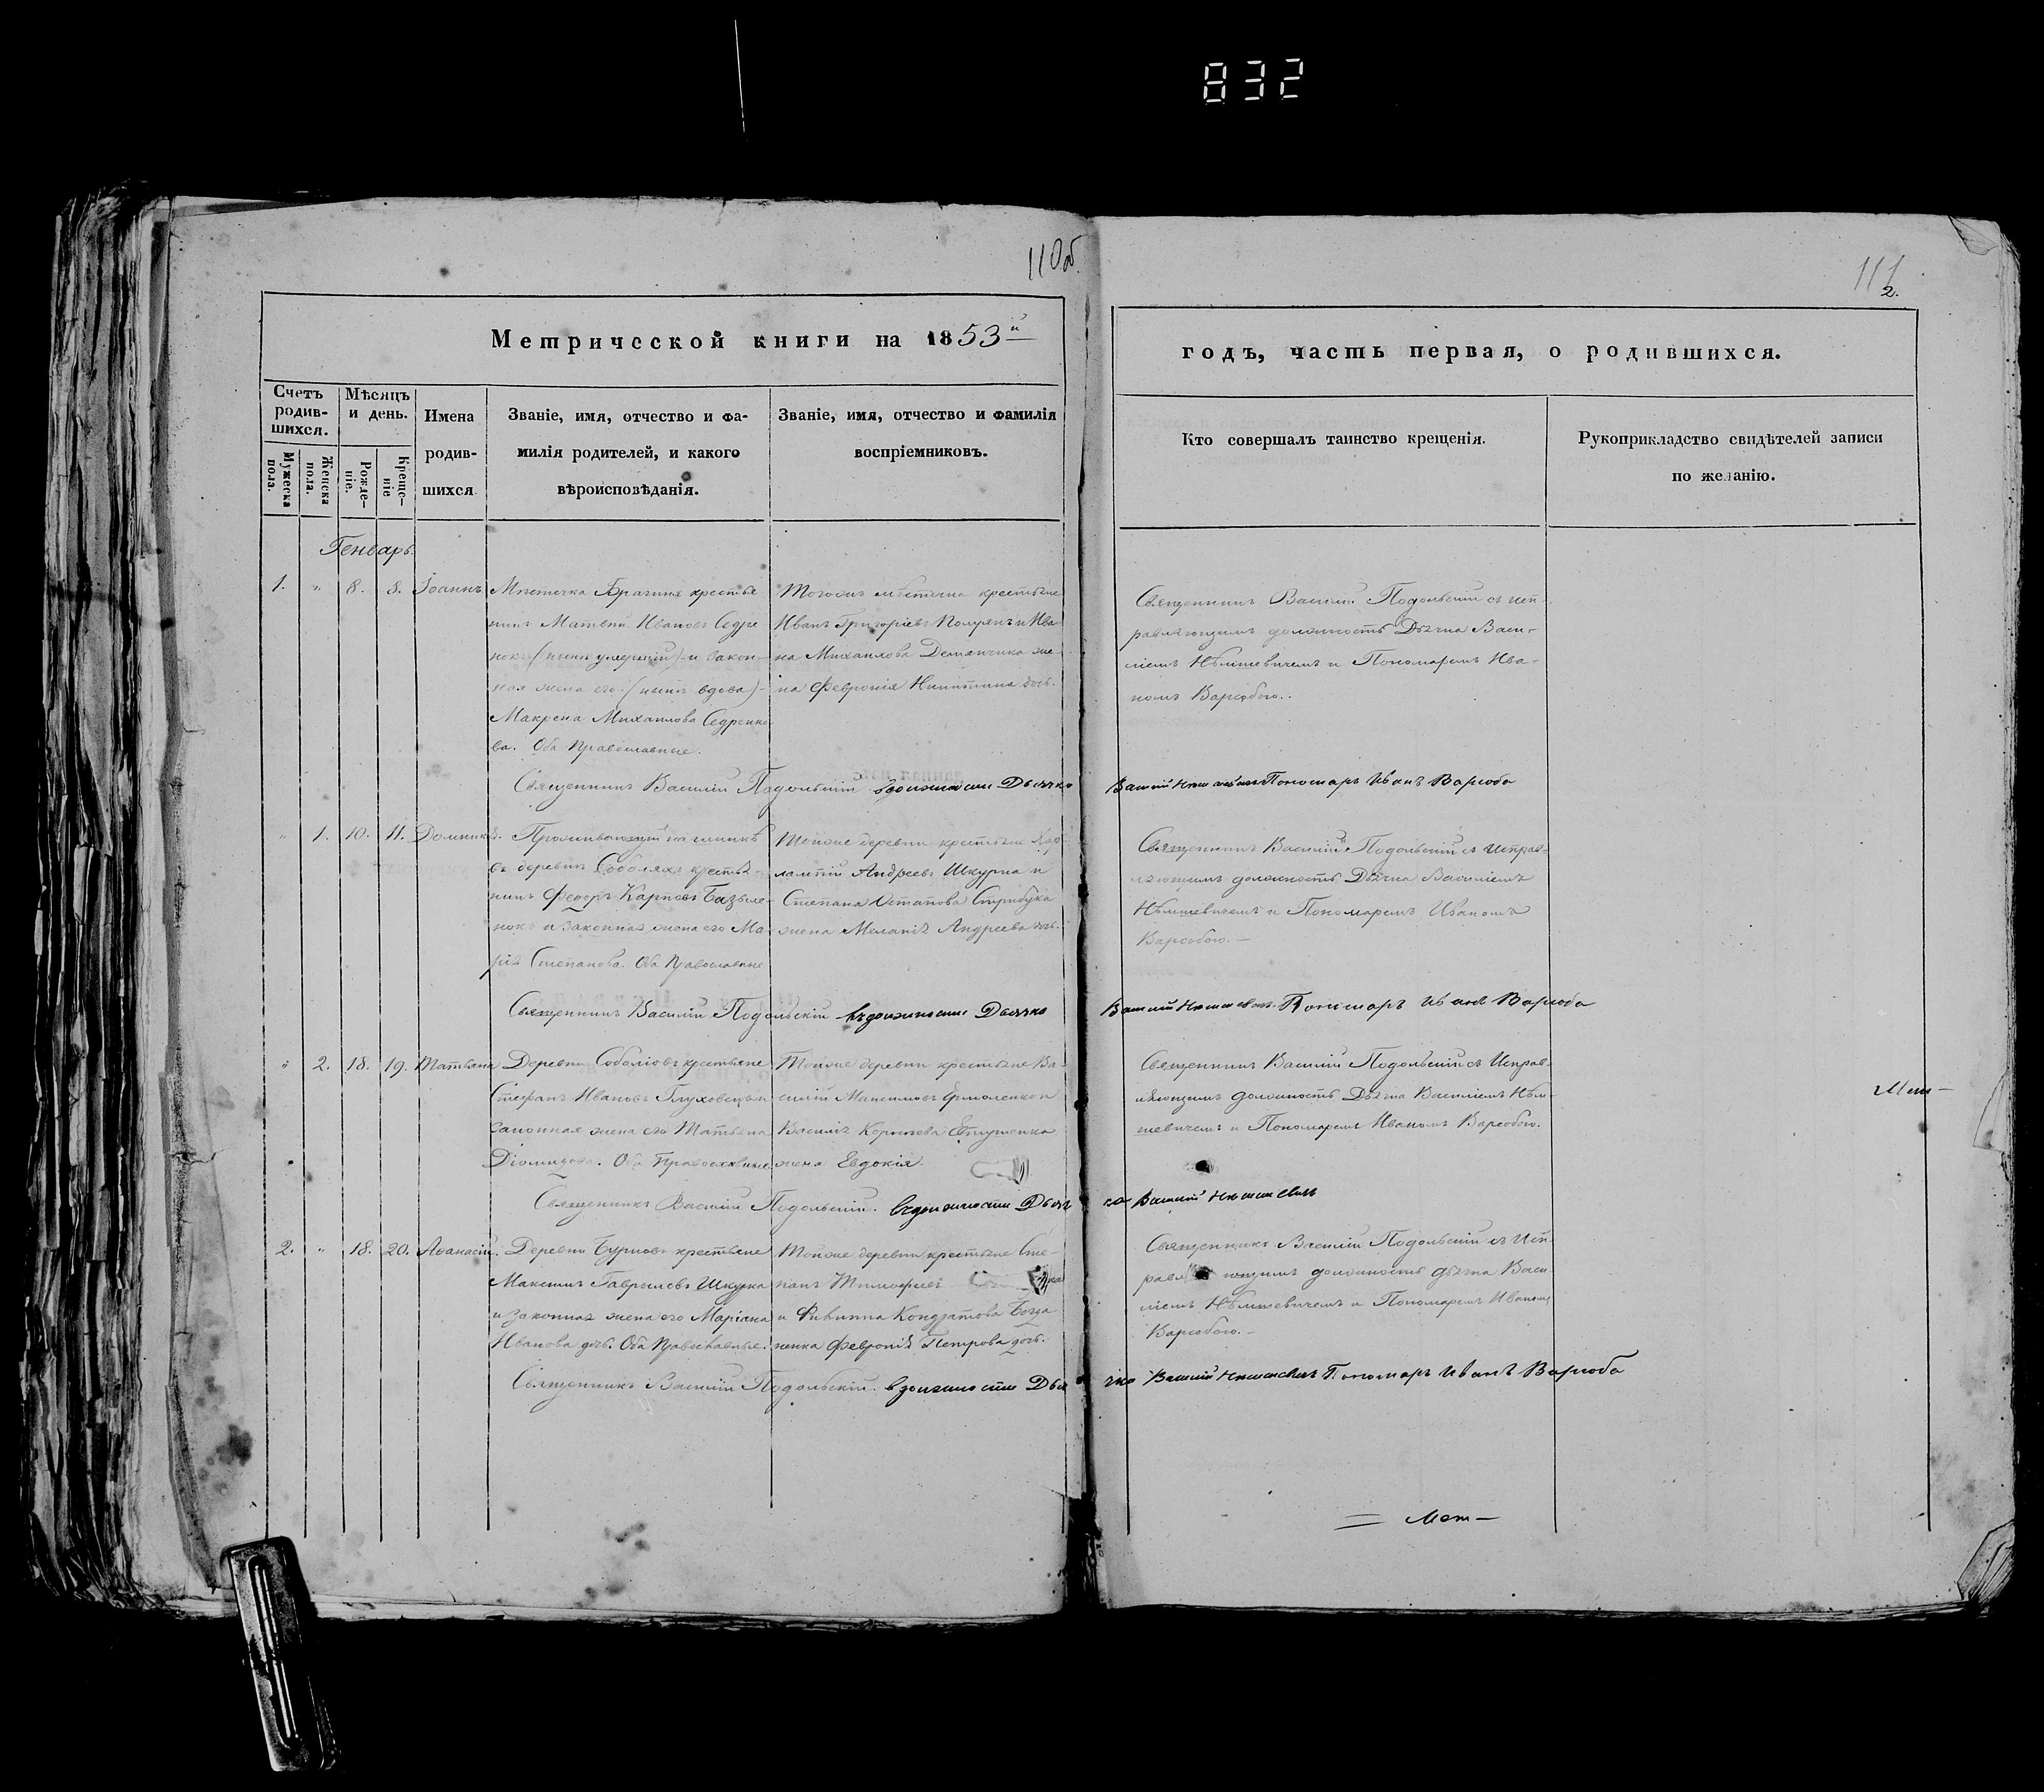 832
110об.
111
2.
Метрической книги на 1853й
годъ, часть первая, о родившихся.
Счетъ родив-
шихся.
Мужеска пола.
Женска пола.
Мѣсяцъ и день.
Рожде-
ніе.
Креще-
ніе
Имена
родив-
шихся
Званіе, имя, отчество и фа-
милія родителей, и какого
вѣроисповѣданія.
Званіе, имя, отчество и фамилія
воспріемниковъ.
Кто совершалъ таинство крещенія.
Рукоприкладство свидѣтелей записи
по желанію.
Генварь.
1. " 8. 8. Іоаннъ
Мѣстечка Брагиня крестья
нинъ Матвѣй Ивановъ Седре
нокъ (нынѣ умершій) и закон-
ная жена его (нынѣ вдова)
Макрена Михаилова Седренко
ва. Оба православные.
Тогожъ мѣстечка крестьяне
Иванъ Григорьевъ и Ива
на Михаилова Демянчика же
на Февронія Никитина дочь.
Священникъ Василій Подольскій съ исп-
равляющимъ должность Дьячка Васи-
ліемъ Нѣмшевичемъ и Пономаремъ Ива-
номъ Варсобою.
Священникъ Василій Подольскій въ должности Дьячка
Василій Нѣмшевичъ Пономарь Иванъ Варсоба
" 1. 10. 11. Домника.
Проживающій на
въ деревнѣ Соболяхъ крестья
нинъ Феодоръ Карповъ Базыле-
нокъ и законная жена его Ма-
рія Степанова. Оба православные
Тойже деревни крестьяне Хар-
лампій Андреевъ Шкурка и
Степана Остапова Стрибука
жена Меланія Андреева дочь.
Священникъ Василій Подольскій съ исправ-
ляющимъ должность Дьячка Василіемъ
Нѣмшевичемъ и Пономаремъ Иваномъ
Варсобою.
Священникъ Василій Подольскій въ должности Дьячка
Василій Нѣмшевичъ Пономарь Иванъ Варсоба
" 2. 18. 19. Татьяна
Деревни Соболіовъ крестьяне
Стефанъ Ивановъ Глуховскій и
законная жена его Татьяна
Діомидова. Оба Православные
Тойже деревни крестьяне Ва-
силій Максимовъ Ермоленко и
Василія Корнѣева Евтушенка
жена Евдокія
Священникъ Василій Подольскій съ Исправ-
ляющимъ должность Дьячка Василіемъ Нѣм-
шевичемъ и Пономаремъ Иваномъ Варсобою.
Мет-
Священникъ Василій Подольскій. въ должности Дьяч
ка Василій Нѣмшевичъ
2. " 18. 20. Аѳанасій.
Деревни Бурковъ крестьяне
Максимъ Гавриловъ Шкурка
и законная жена его Маріана
Иванова дочь. Оба православные.
Тойже деревни крестьяне Сте-
панъ Тимофеевъ
и Филиппа Кондратова Богда
ненка Февронія Петрова дочь.
Священникъ Василій Подольскій съ Исп-
равляющимъ должность дьячка Васи-
ліемъ Нѣмшевичемъ и Пономаремъ Иваномъ
Варсобою.
Священникъ Василій Подольскій. въ должности Дья
чка Василій Нѣмшевичъ Пономарь Иванъ Варсоба
= Мет-